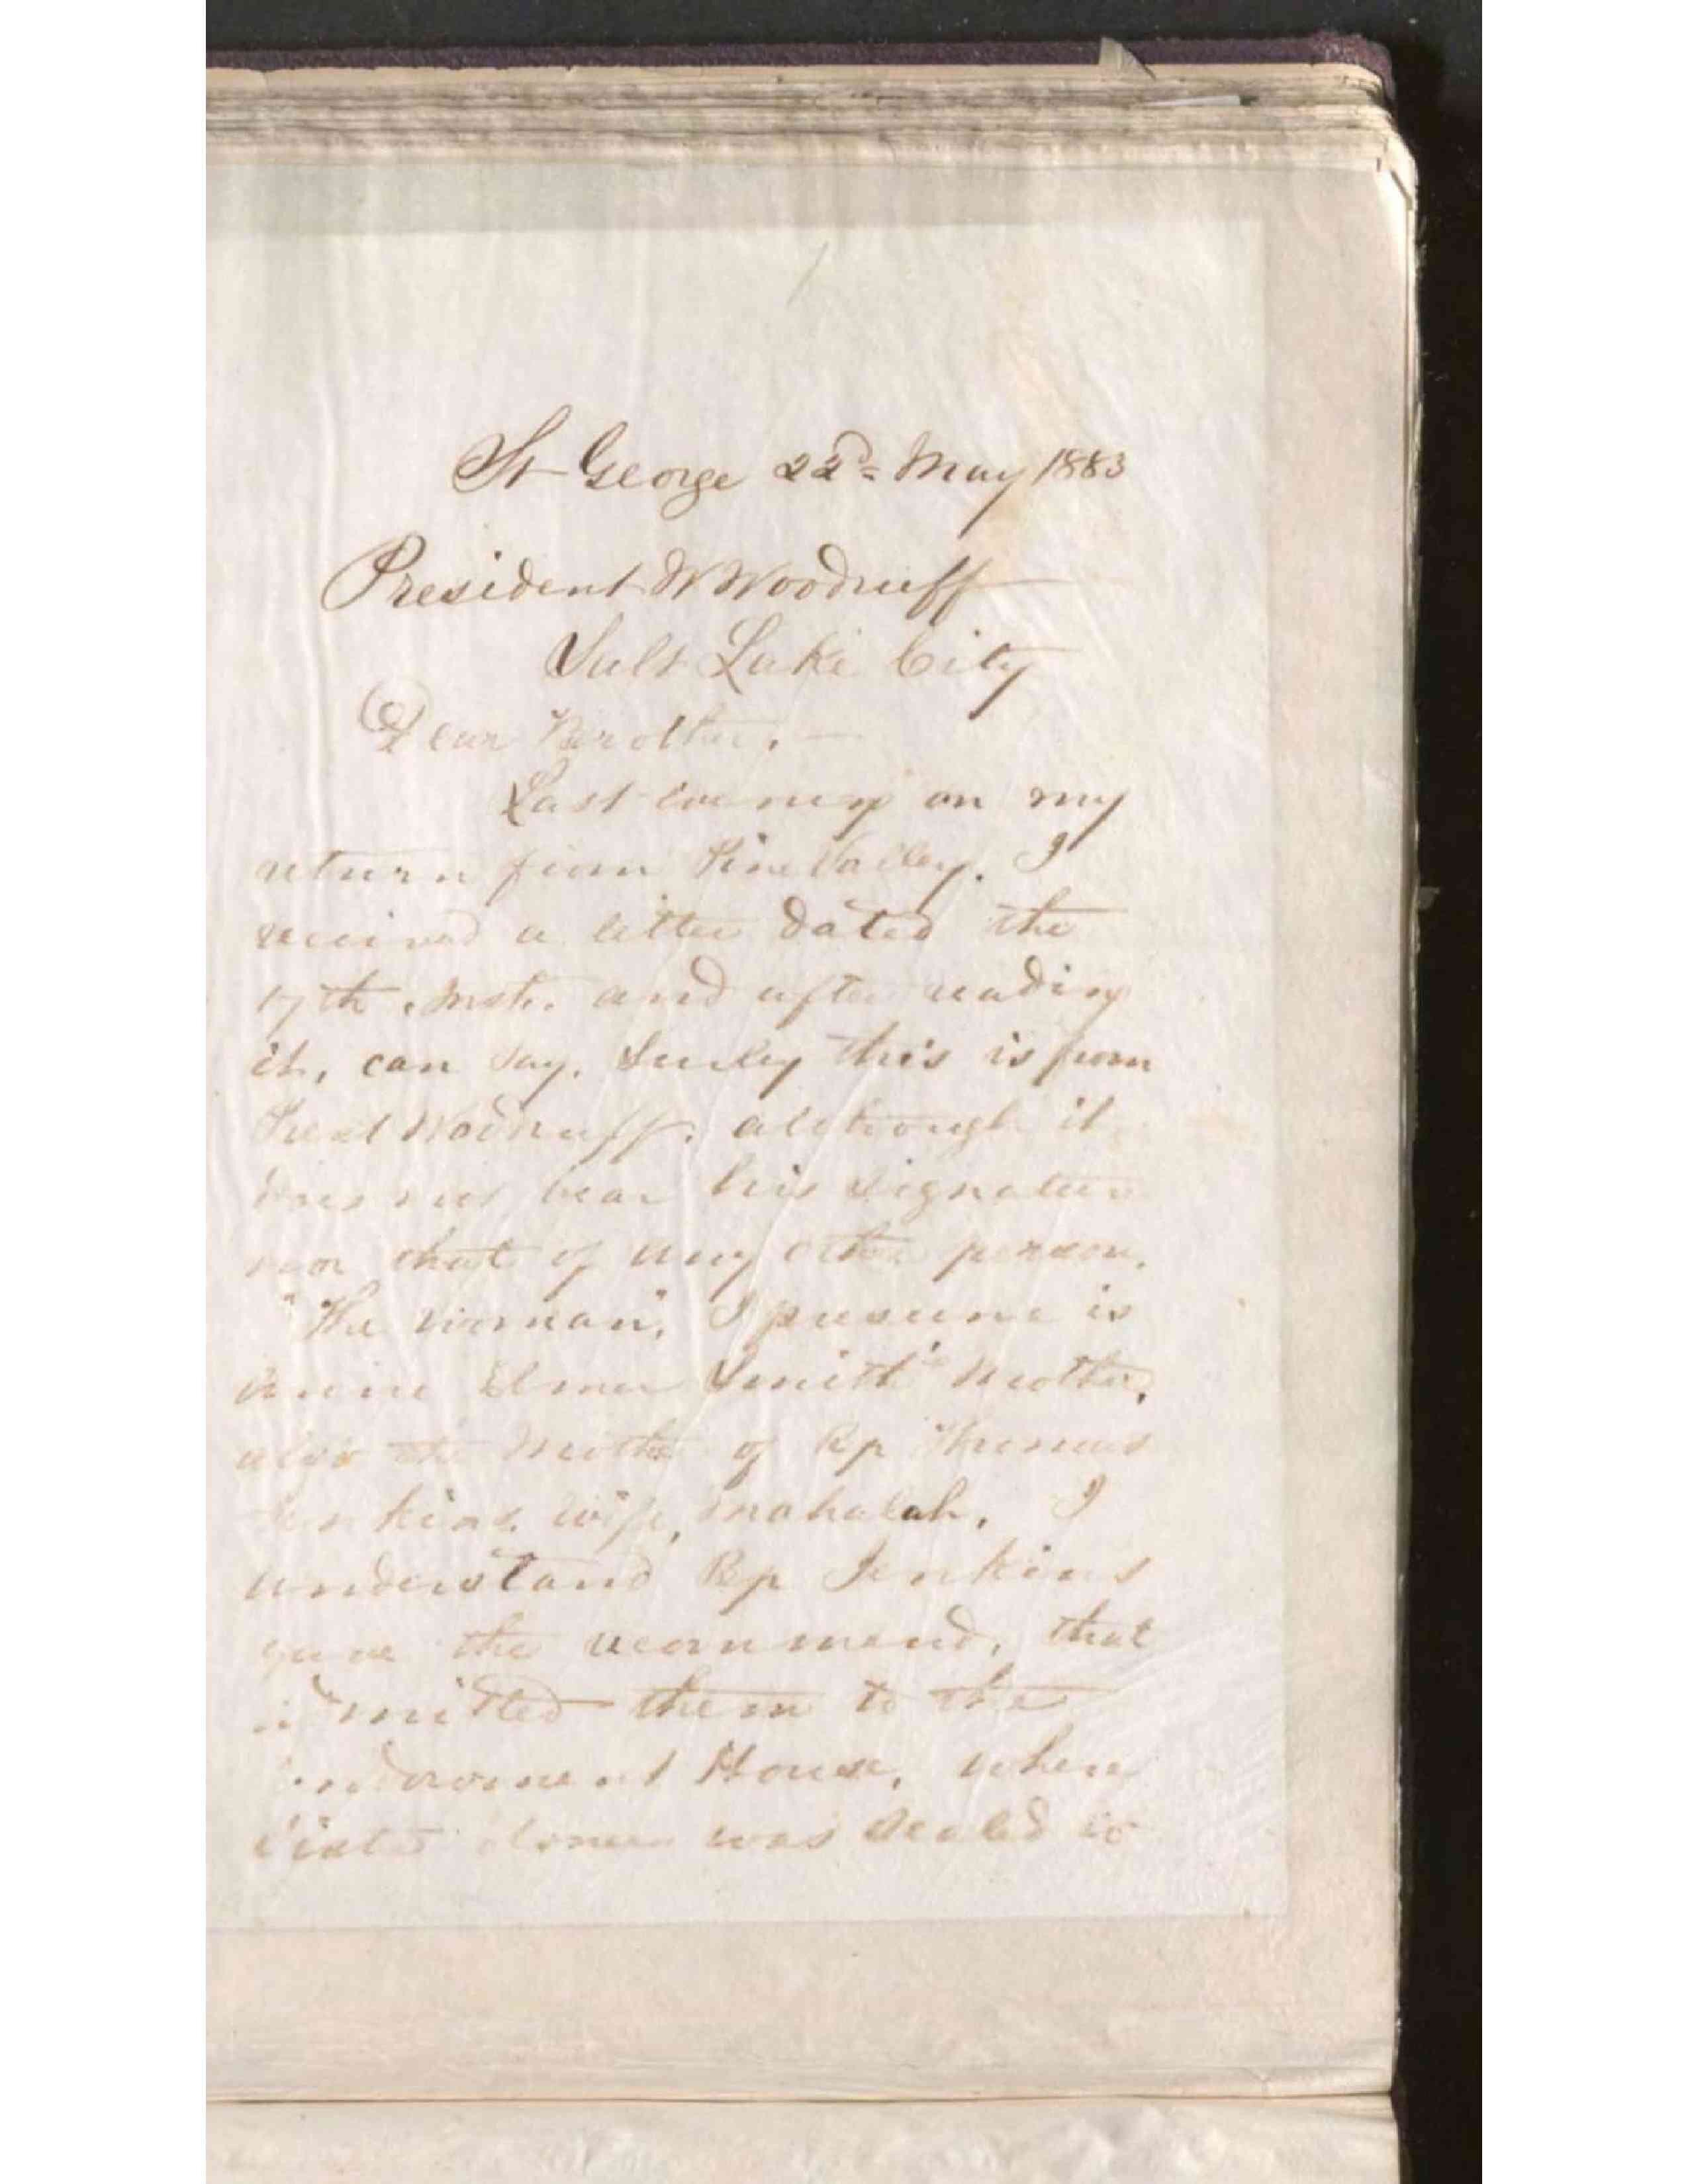 St George 22d= May 1883
President W Woodruff
Salt Lake City
Dear Brother, —
Last evening on my
return from Pine Valley. I
received a letter dated the
17th. Inst. and after reading
it, can say. Surley this is from
Prest Woodruff. although it
does not bear his signature
nor that of any other person.
"The woman", I presume is
Smith's Mother,
also the Mother of Bp Thomas
Jenkins wife, Mahalah. I
understand Bp Jenkins
gave the recommend, that
admitted them to the
Endowment House, when
Sister was sealed to